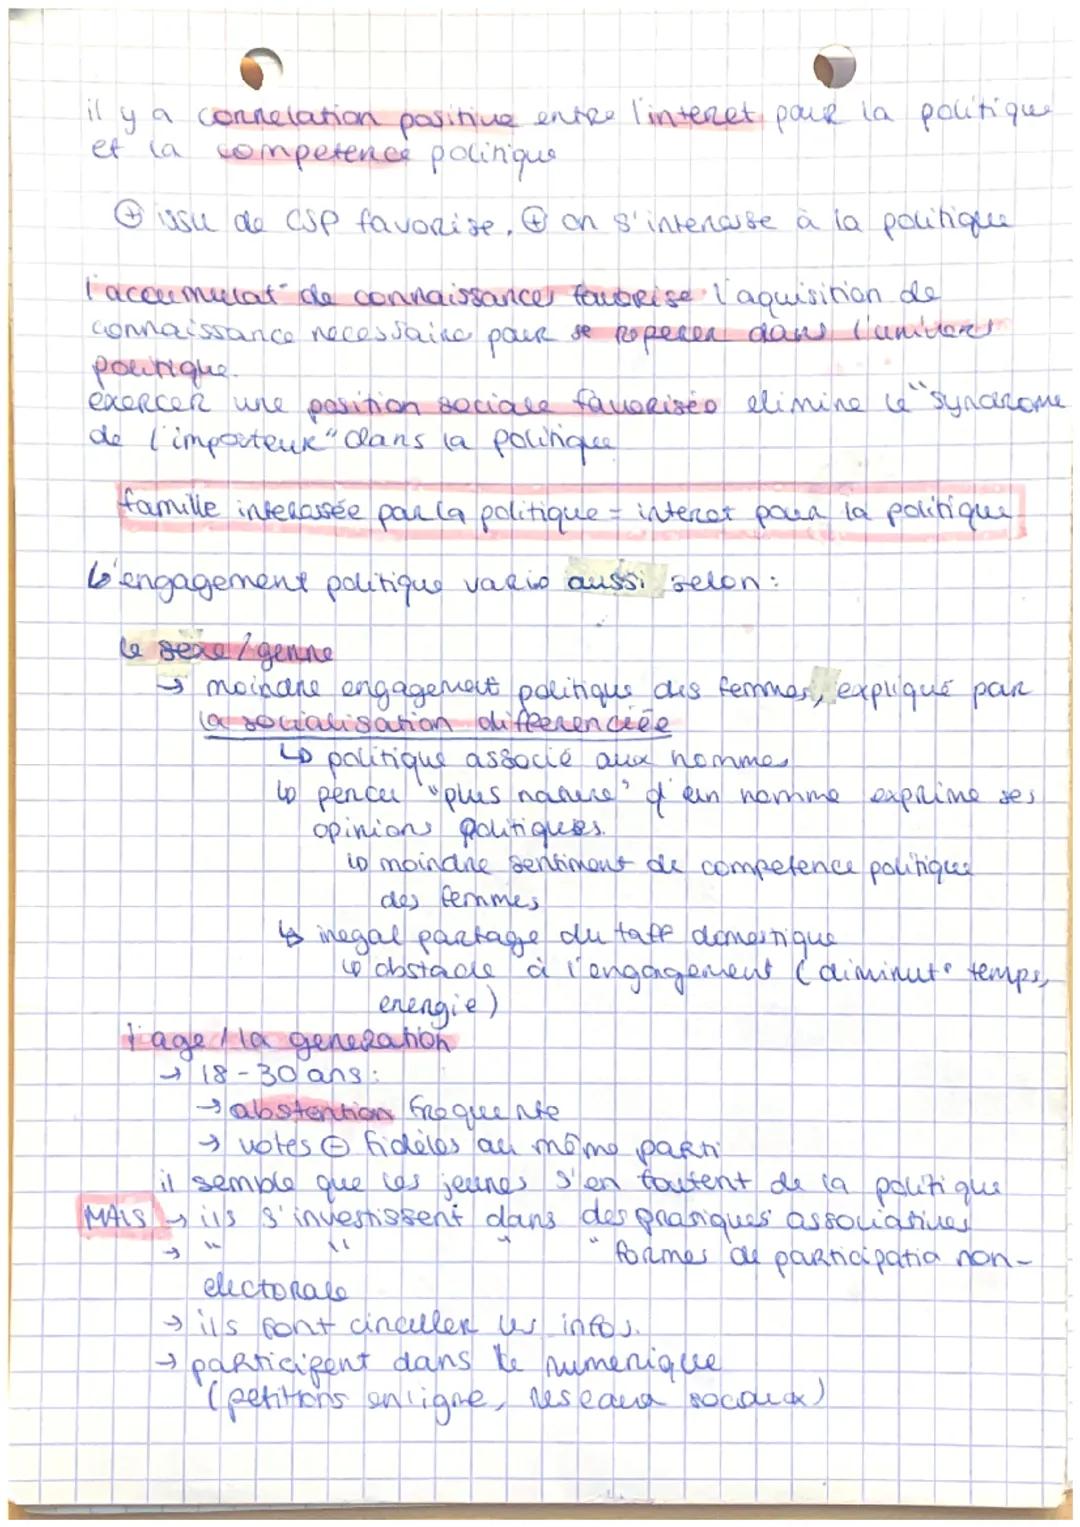 il y a correlation positive entre l'interet pour la politique
et la competence politique
⊕ issu de CSP favorise, ⊕ on s'interesse à la politique
l'accumulat° de connaissances favorise l'aquisition de
connaissance necessaire pour se reperer dans l'univers
politique.
exercer une position sociale favorisée elimine le "syndrome
de l'imposteur" dans la politique
famille interessée par la politique = interet pour la politique
L'engagement politique varie aussi selon :
le sexe / genre
→ moindre engagement politique des femmes, expliqué par
la socialisation differenciée
↳ politique associé aux hommes
↳ percu "plus naturel" q'un homme exprime ses
opinions politiques.
↳ moindre sentiment de competence politique
des femmes
↳ inegal partage du taff domestique
↳ obstacle à l'engagement (diminut° temps,
energie)
l'age / la generation
→ 18-30 ans :
→ abstention frequente
→ votes ⊖ fidèles au même parti
il semble que les jeunes s'en foutent de la politique
MAIS → ils s'investissent dans des pratiques associatives
→ " " " " formes de participatio non-
electorale
→ ils font circuler les infos.
→ participent dans le numerique
(petitions en ligne, reseaux sociaux)